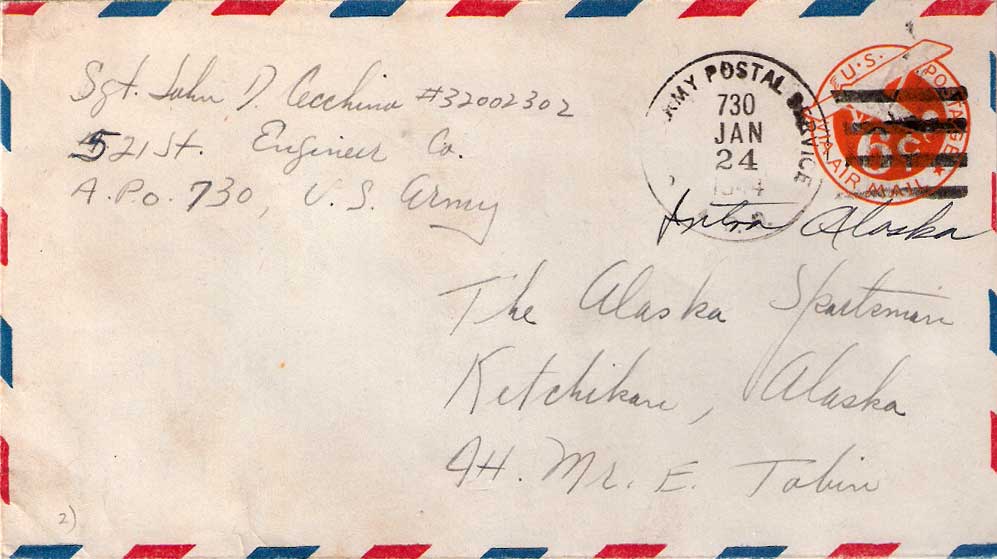 Sgt. John D. Cecchino #32002302
521 St. Engineer Co.
A.P.O. 730, U.S. Army
ARMY POSTAL SERVICE
730
JAN
24
U.S. POSTAGE
6¢
VIA AIR MAIL
Intra Alaska
The Alaska Sportsman
Ketchikan, Alaska
Att. Mr. E. Tobin
2)